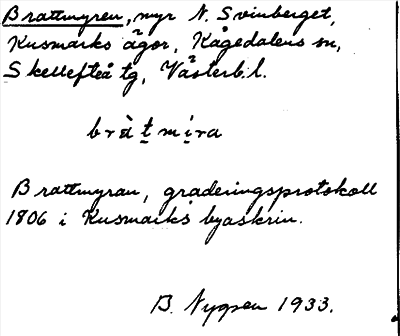 Brattmyren, myr N. Svinberget,
Kusmarks ägor, Kågedalens sn,
Skellefteå tg, Västerb.l.
bràt̠mi̠ra
Brattmyran, graderingsprotokoll
1806 i Kusmarks byaskrin.
B. Nygren 1933.